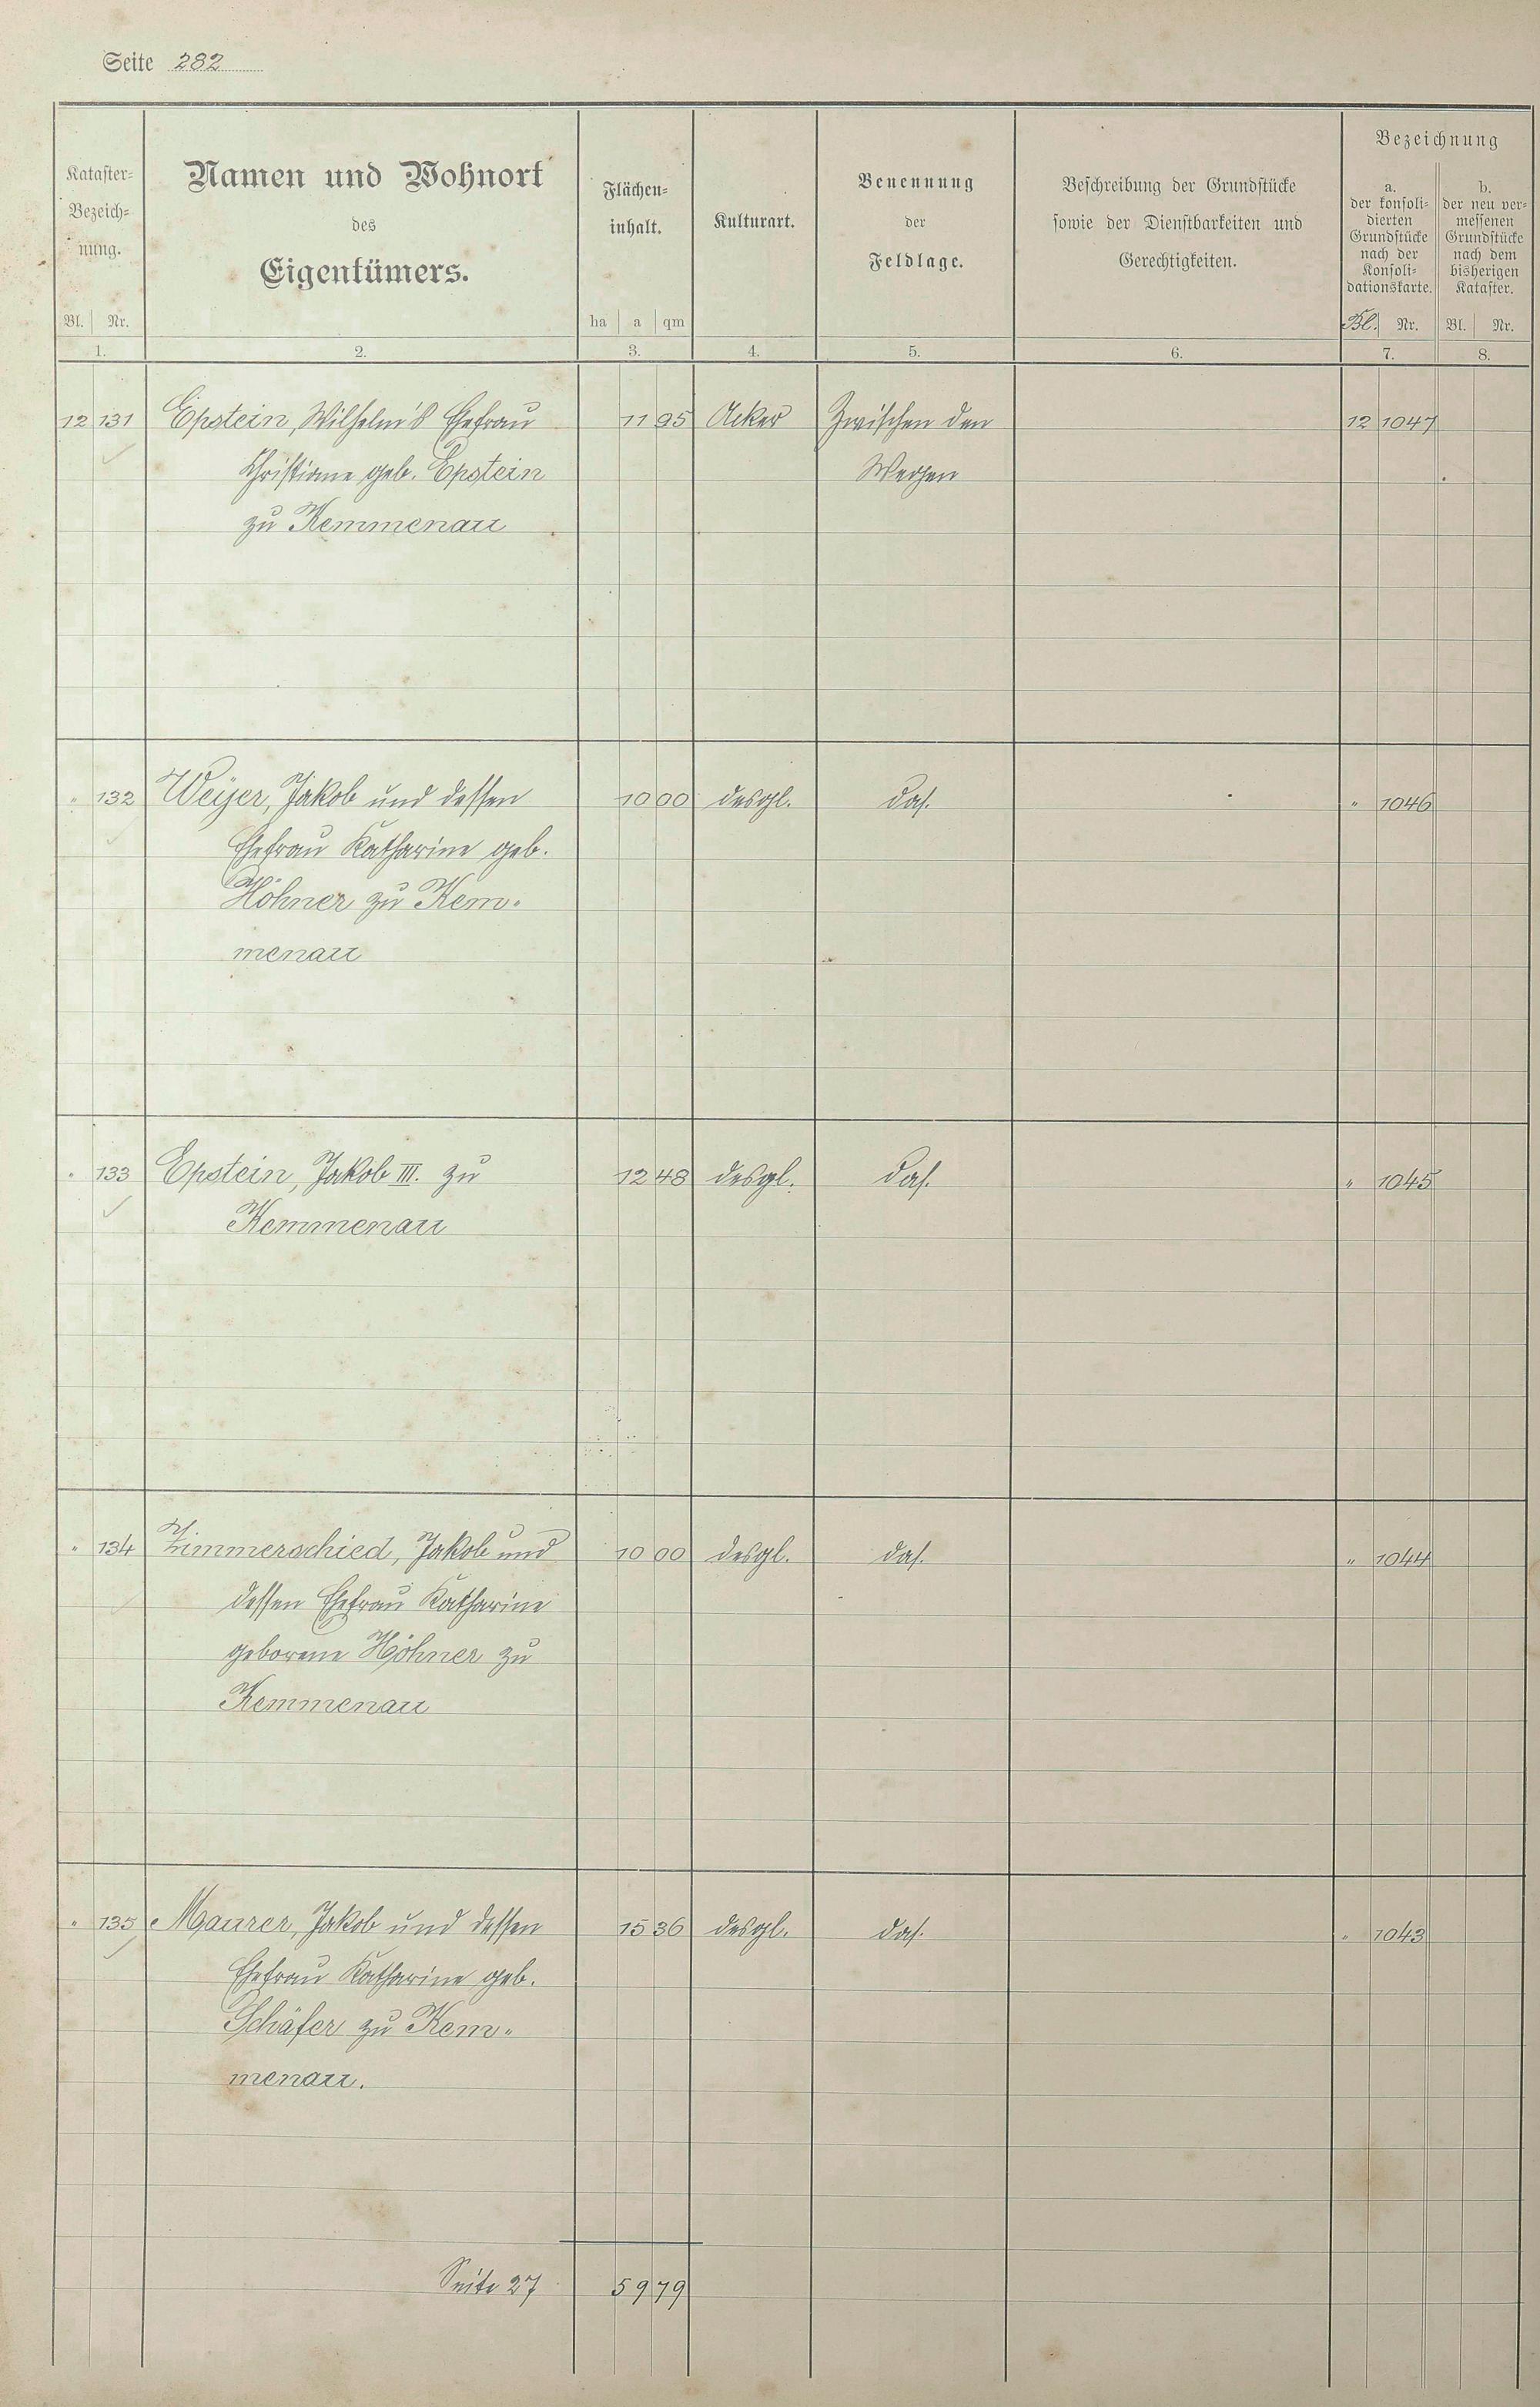 Seite 282
Kataster-
Bezeich-
nung.
Bl. Nr.
1.
Namen und Wohnort
des
Eigentümers.
2.
Flächen-
inhalt.
ha a qm
3.
Kulturart.
4.
Benennung
der
Feldlage.
5.
Beschreibung der Grundstücke
sowie der Dienstbarkeiten und
Gerechtigkeiten.
6.
Bezeichnung
a.
der konsoli-
dierten
Grundstücke
nach der
Konsoli-
dationskarte.
Bl. Nr.
7.
b.
der neu ver-
messenen
Grundstücke
nach dem
bisherigen
Kataster.
Bl. Nr.
8.
12 131 Epstein, Wilhelm's Ehefrau 11 95 Acker Zwischen den 12 1047
Christiane geb. Epstein Wegen
zu Kemmenau
" 132 Weyer, Jakob und dessen 10 00 desgl. das. " 1046
Ehefrau Katharine geb.
Höhner zu Kem-
menau
" 133 Epstein, Jakob III. zu 12 48 desgl. das. " 1045
Kemmenau
" 134 Zimmerschied, Jakob und 10 00 desgl. das. " 1044
dessen Ehefrau Katharine
geborene Höhner zu
Kemmenau
" 135 Maurer, Jakob und dessen 15 36 desgl. das. " 1043
Ehefrau Katharine geb.
Schäfer zu Kem-
menau.
Seite 27 59 79